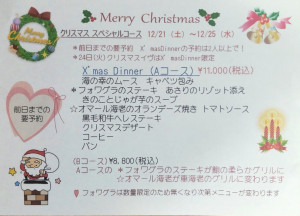 Merry Christmas
クリスマス スペシャルコース 12/21(土)~12/25(水)
*前日までの要予約 X'masDinnerの予約は2人以上で!
*24日(火)クリスマスイヴはX'masDinner限定
X'mas Dinner(Aコース)¥11,000(税込)
海の幸のムース キャベツ包み
*フォワグラのステーキ あさりのリゾット添え
きのことじゃが芋のスープ
☆オマール海老のオランデーズ焼き トマトソース
黒毛和牛ヘレステーキ
クリスマスデザート
コーヒー
パン
前日までの
要予約
(Bコース)¥8,800(税込)
Aコースの *フォワグラのステーキが鮑の柔らかグリルに
☆オマール海老が車海老のグリルに変わります
フォワグラは数量限定のため無くなり次第メニューが変わります